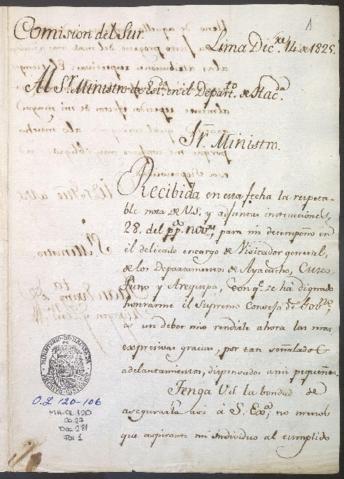 1
Comision del Sur
Lima Dic.re 14 de 1825.
Al Sr. Ministro de Est.o en el Depart.o de Hac.da
Sr. Ministro.
Recibida en esta fecha la respeta-
ble nota de V.S. y adjuntas instrucciones,
28. del pp. Nov.re para mi desempeño en
el delicado encargo de Visitador general,
de los Departamentos de Ayacucho, Cuzco
Puno y Arequipa, con q.e se ha dignado
honrarme el Supremo Consejo de Gob.no
es un deber mio rendirle ahora las mas
expresivas gracias, por tan señalado
adelantamiento, dispensado a mi pequeñez.
Tenga VS. la bondad de
asegurarla asi a S. Exc.a no menos
que aspirante mi individuo al cumplido
O.L. 120-106
MH-OL 120
Doc 281